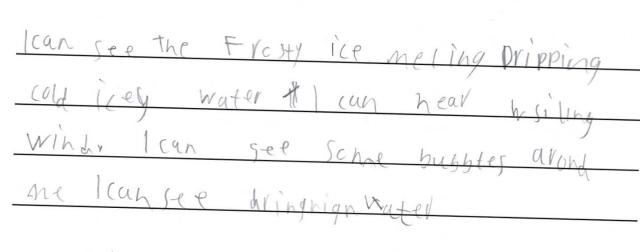 I can see the Frosty ice meling Dripping
cold icey water I can hear wsiling
wind. I can see some bubbles arond
me I can see water